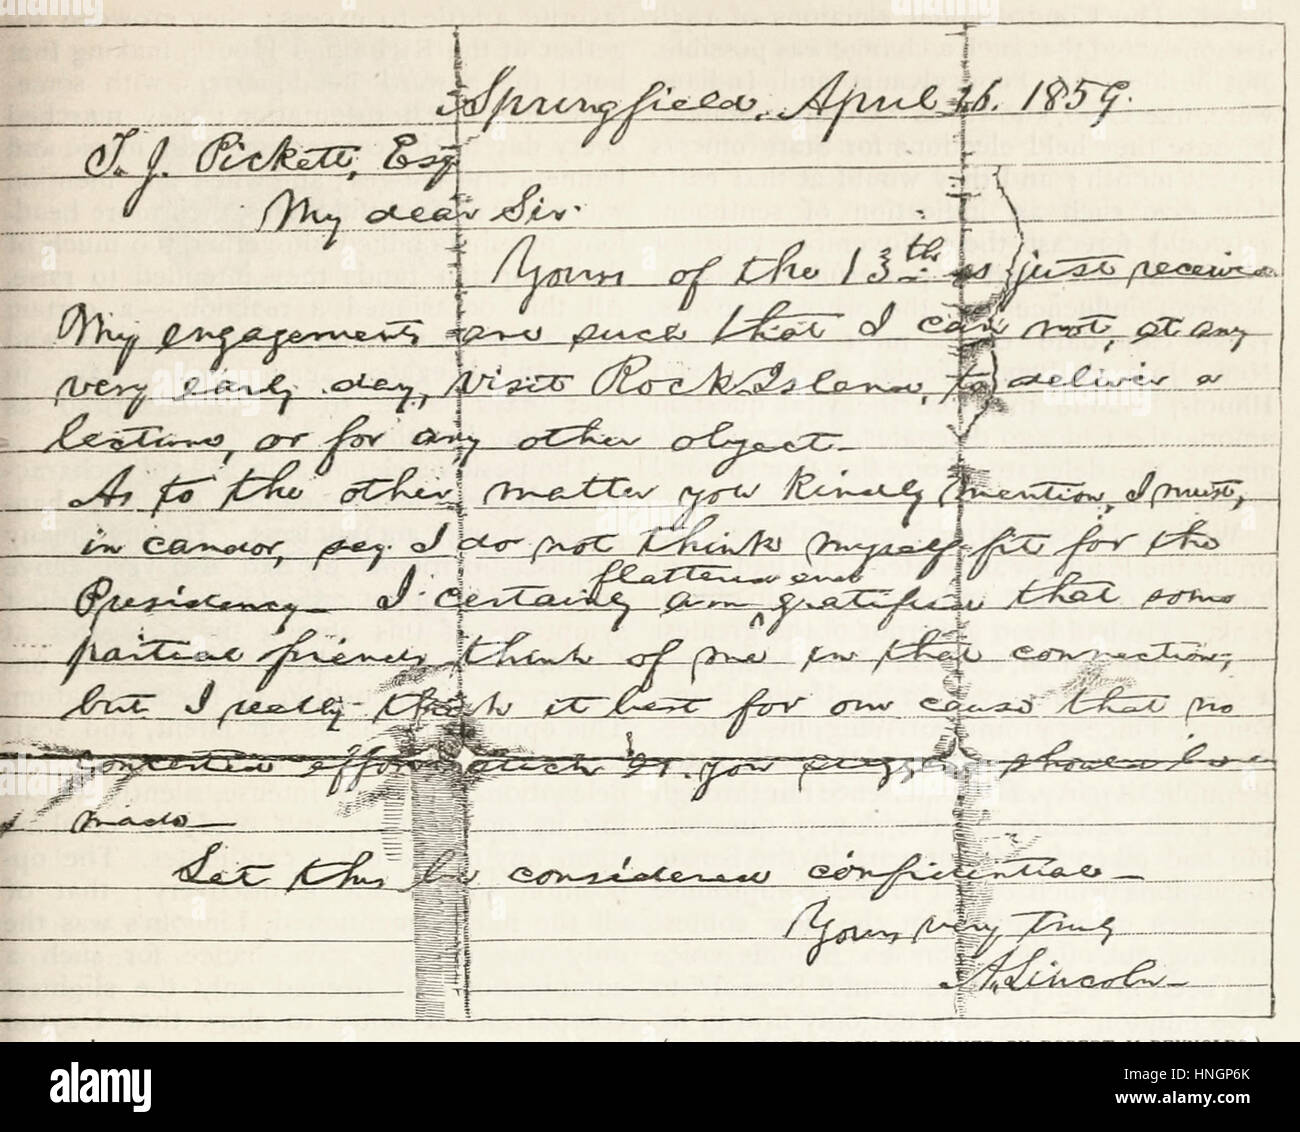 Springfield, April 16. 1859.
T. J. Pickett, Esq
My dear Sir:
Yours of the 13th is just received
My engagements are such that I can not, at any
very early day, visit Rock Island, to deliver a
lecture, or for any other object.
As to the other matter you kindly mention, I must,
in candor, say I do not think myself fit for the
flattered and
Presidency— I certainly am gratified that some
partial friends think of me in that connection;
but I really think it best for our cause that no
concerted effort, such as you suggest should be
made—
Let this be considered confidential—
Yours very truly
A. Lincoln—
alamy
Image ID: HNGP6K
www.alamy.com